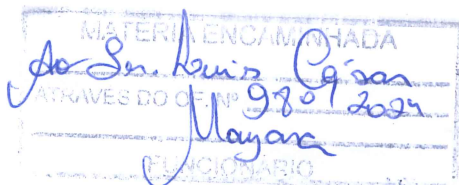 MATÉRIA ENCAMINHADA
Ao Sr. Luis César
ATRAVÉS DO OF. Nº 980/2024
Mayara
FUNCIONÁRIO